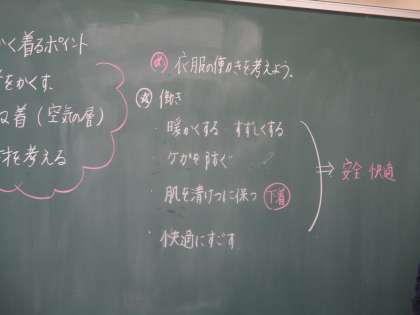 かく着るポイント
をかくす。
ね着（空気の層）
材を考える
め 衣服の働きを考えよう。
ま 働き
・暖かくする すずしくする
・ケガを防ぐ
・肌を清けつに保つ 下着
・快適にすごす
⇒ 安全 快適